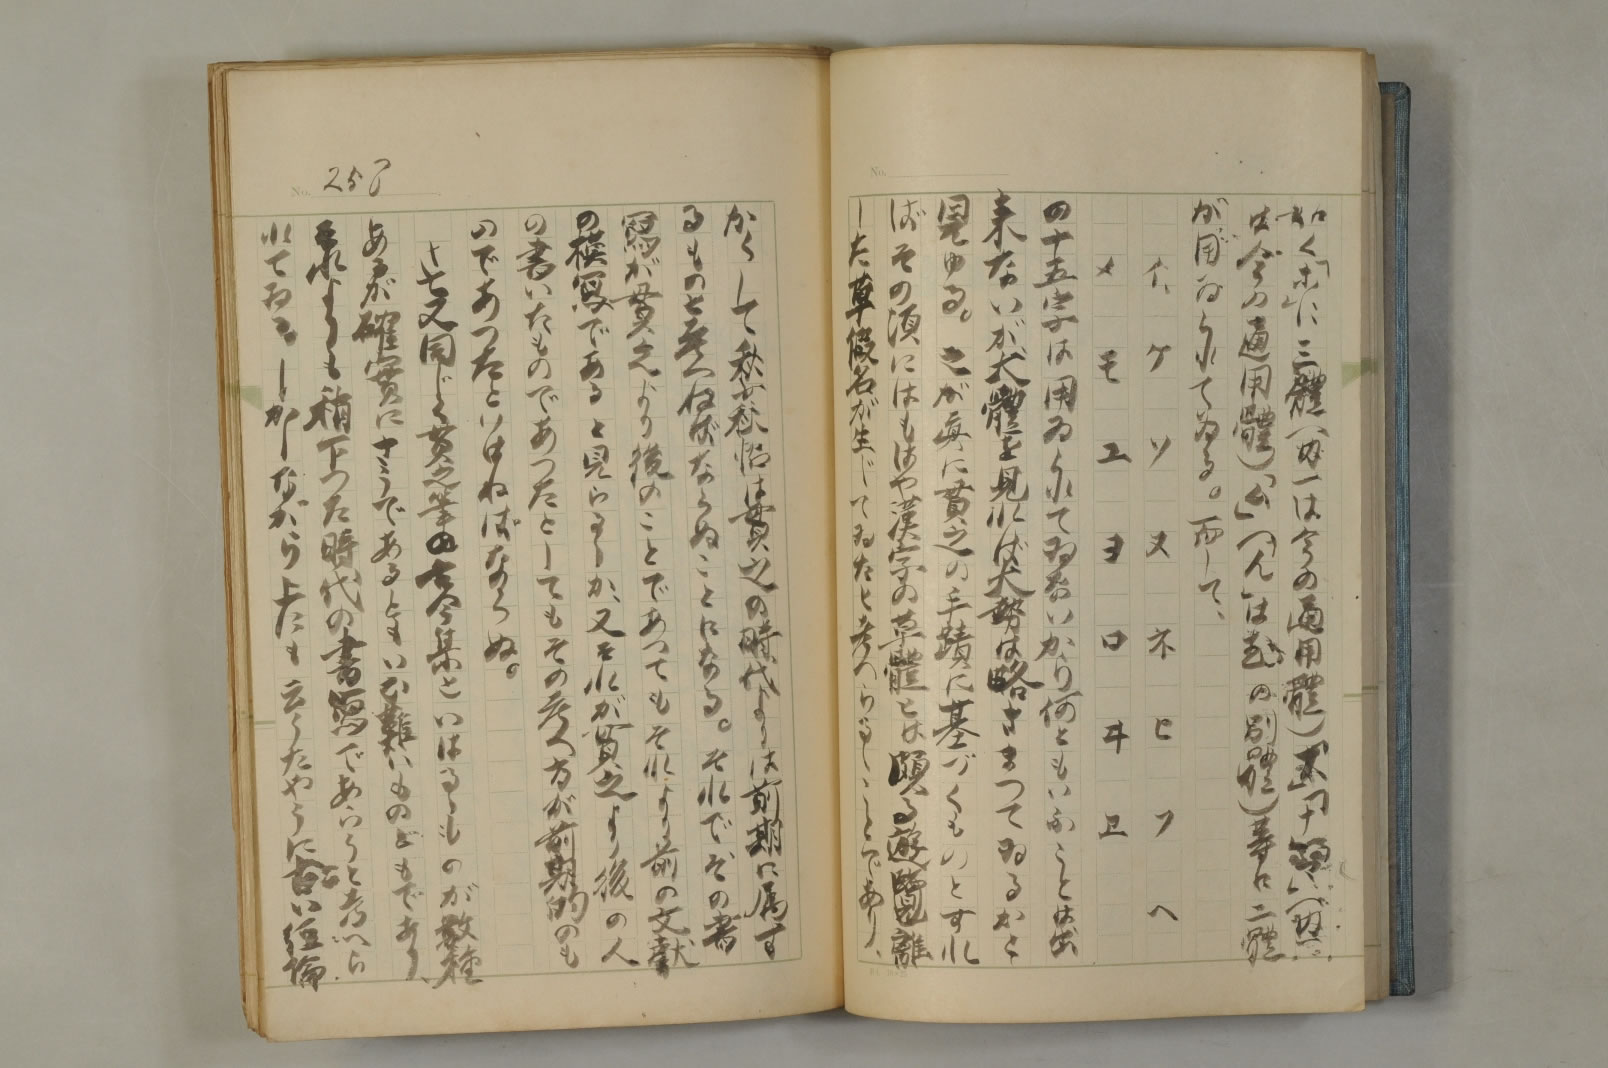 No.
如く「ホ」に三體(一は今の通用體)
は今の通用體)「ム」「ん」は の別體)等に二體
が用ゐられてゐる。而して、
イ、ケ ソ ヌ ネ ヒ フ ヘ
メ モ ユ ヨ ロ ヰ ヱ
の十五字は用ゐられてゐないから何ともいふことは出
来ないが大體を見れば大勢は略きまつてゐるかと
見ゆる。之が真に貫之の手蹟に基づくものとすれ
ばその頃にはもはや漢字の草體とは頗る遊離
した草假名が生じてゐたと考へらるゝことであり、
No. 257
かくして秋萩帖は貫之の時代よりは前期に属す
るものと考へねばならぬことになる。それでその書
寫が貫之より後のことであつてもそれより前の文獻
の模寫であると見らるゝか、又それが貫之より後の人
の書いたものであつたとしてもその考へ方が前期的のも
のであつたといはねばならぬ。
又同じく貫之筆の古今集といはるゝものが数種
あるが確實にさうであるともいひ難いものどもであり、
それよりも稍下つた時代の書寫であらうと考へら
れてゐる。しかしながら上にも云うたやうに古い経論